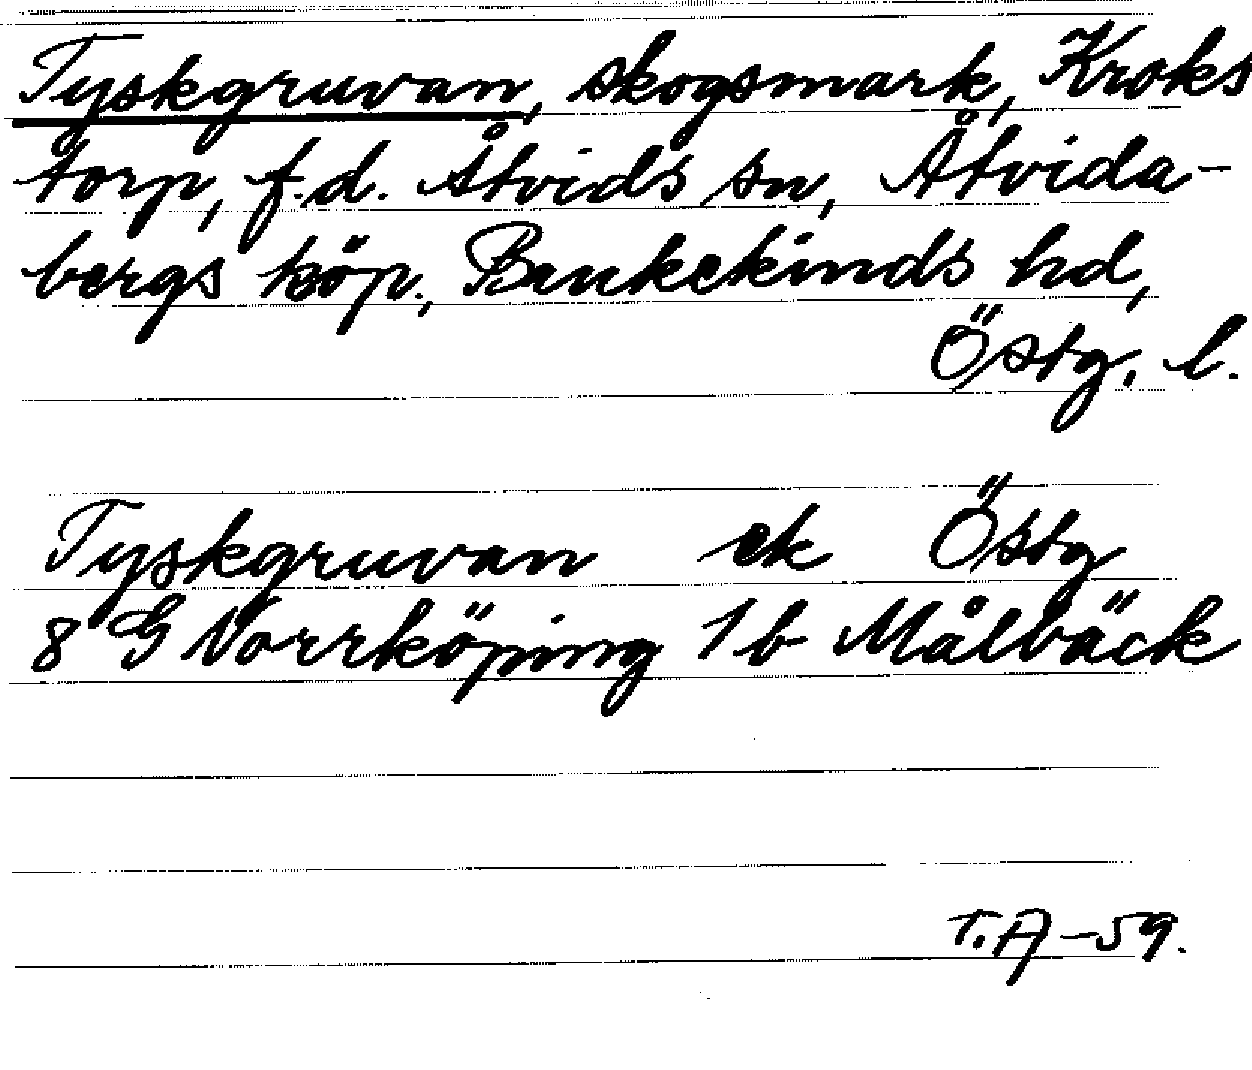 Tyskgruvan, skogsmark, Kroks
torp, f.d. Åtvids sn, Åtvida-
bergs köp., Bankekinds hd,
Östg. l.
Tyskgruvan ek Östg
8 G Norrköping 1 b Målbäck
T.A-59.